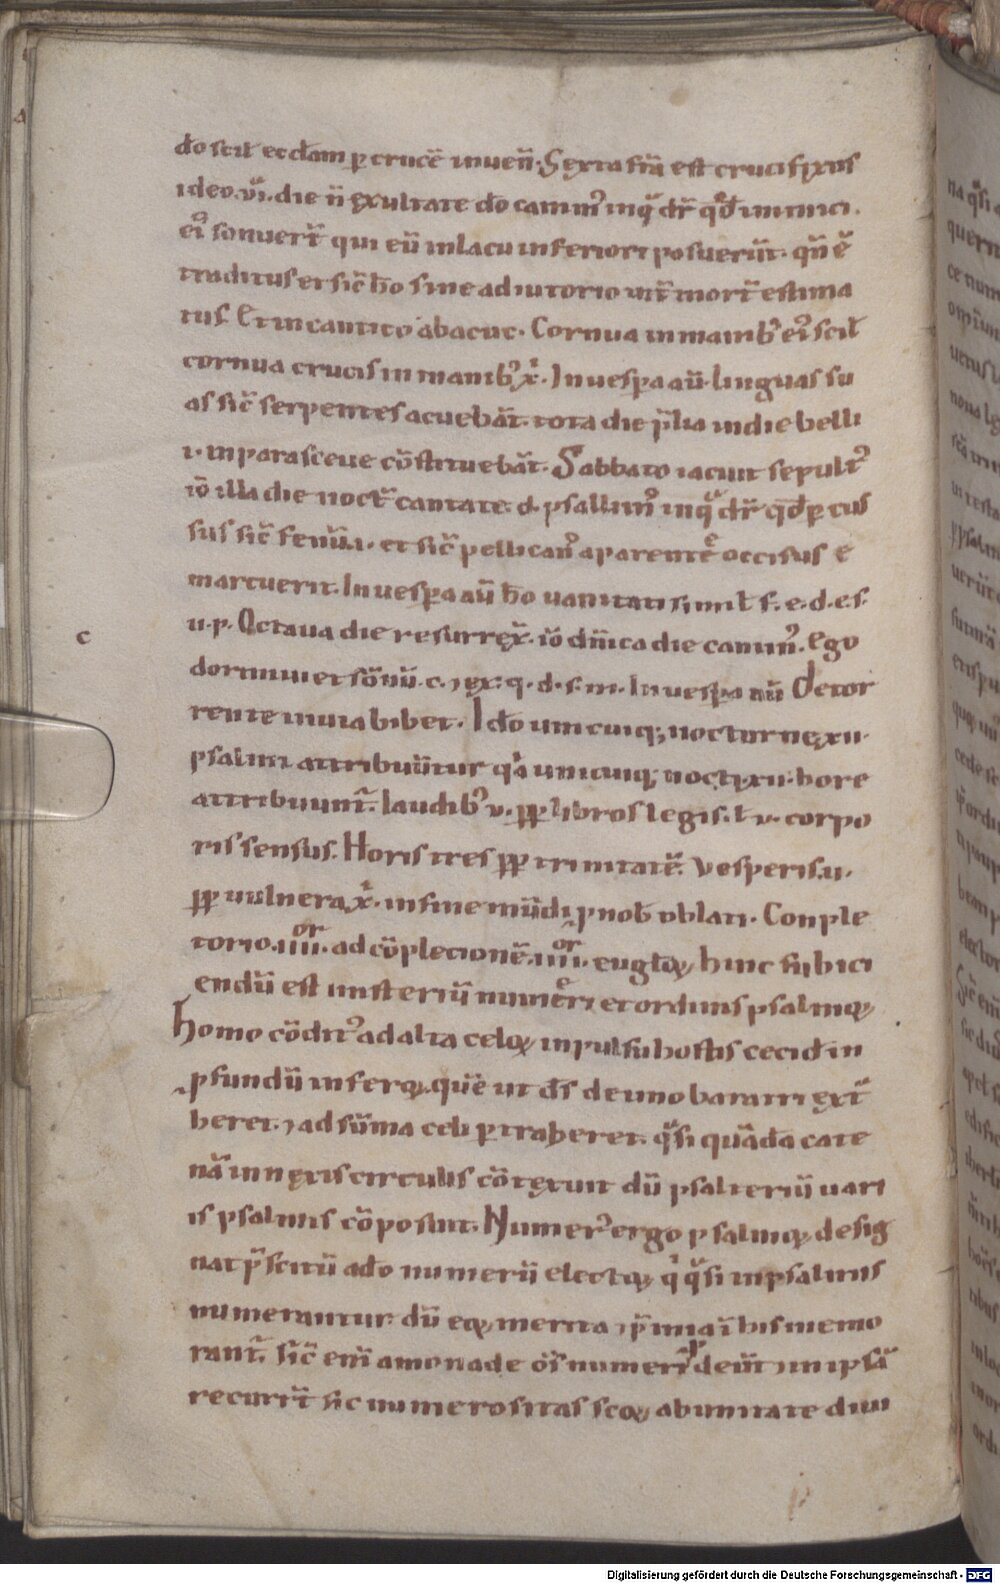 do scil eccłam ꝑ crucē inuen̄. Sexta fr̄a est crucifixus
ideo .vi. die n̄ exultate do canim᷒ in q̄ dr̄ qđ inimici
ei᷒ sonuer̄t qui eū in lacu inferiori posuerūt. qn̄ ē
traditus et sic̄ ħo sine adiutorio int̄ mort̄ estima
tus. Et in cantico abacuc. Cornua in manib᷒ ei᷒ scił
cornua crucis in manib᷒ xͥ. In uesꝑa aū linguas su
as sic̄ serpentes acuebāt. tota die p̄lia in die belli
.i. in parasceue cōstituebāt. Sabbato iacuit sepult᷒
iō illa die noct̄ cantate. d. psallim᷒ in q̄ dr̄ qđ ꝑcus
sus sic̄ fenū .i. et sic̄ pellican᷒ a parente occisus ē
marcuerit. In uesꝑa aū ħo uanitati simił f. e. d. e. s.
u. p. Octaua die resurrex̄. iō dn̄ica die canim᷒. Ego
c
dormiui et sōnū .c. ⁊ ex. q. d. s. m. In uesꝑa aū De tor
rente in uia bibet. Ido unicuiq; nocturne xii.
psalmi attribuūtur qͣ unicuiq; nocti xii. hore
attribuunt̄. laudib᷒ v. ꝓp libros legis. ł v. corpo
ris sensus. Horis tres ꝓp trinitatē. Vesperis .u.
ꝓp uulnera xͥ. in fine mūdi ꝓ nob̄ oblati. Conple
torio .iiii.or ad cōplecionē .iiii.or eugłoꝝ hinc subici
endū est misteriū numeri et ordinis psalmoꝝ
Homo cōdit᷒ ad alta celoꝝ inpulsu hostis cecid̄ in
ꝓfundū inferoꝝ. quē ut ds̄ de imo baratri ext̄
heret. ⁊ ad sūma celi ꝑtraheret. q̄si quādā cate
nā innexis circulis cōtexuit dū psalteriū uari
is psalmis cōposuit. Numer᷒ ergo psalmoꝝ desig
nat p̄scitū a do numerū electoꝝ qͥ q̄si in psalmis
numerantur dū eoꝝ merita ⁊ p̄mia ī his memo
rant̄. Sic̄ eni̅ a monade ōs numeri ꝓdeūt ⁊ in ipsā
recurrūt sic numerositas scoꝝ ab unitate diui
Digitalisierung gefördert durch die Deutsche Forschungsgemeinschaft - DFG